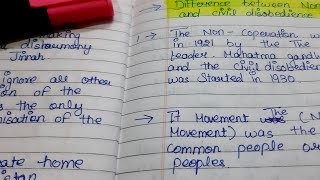 making
disharmony
Jinnah
ignore all other
ion of the
s the only
nisation of the
ate home
Difference between Non
and civil disobedience
1 → The Non-Coperation w
in 1921 by the The
Leader Mahatma gandh
and the Civil disobedien
was Started in 1930.
→ It Movement The (N
Movement) was the
common people or
peoples